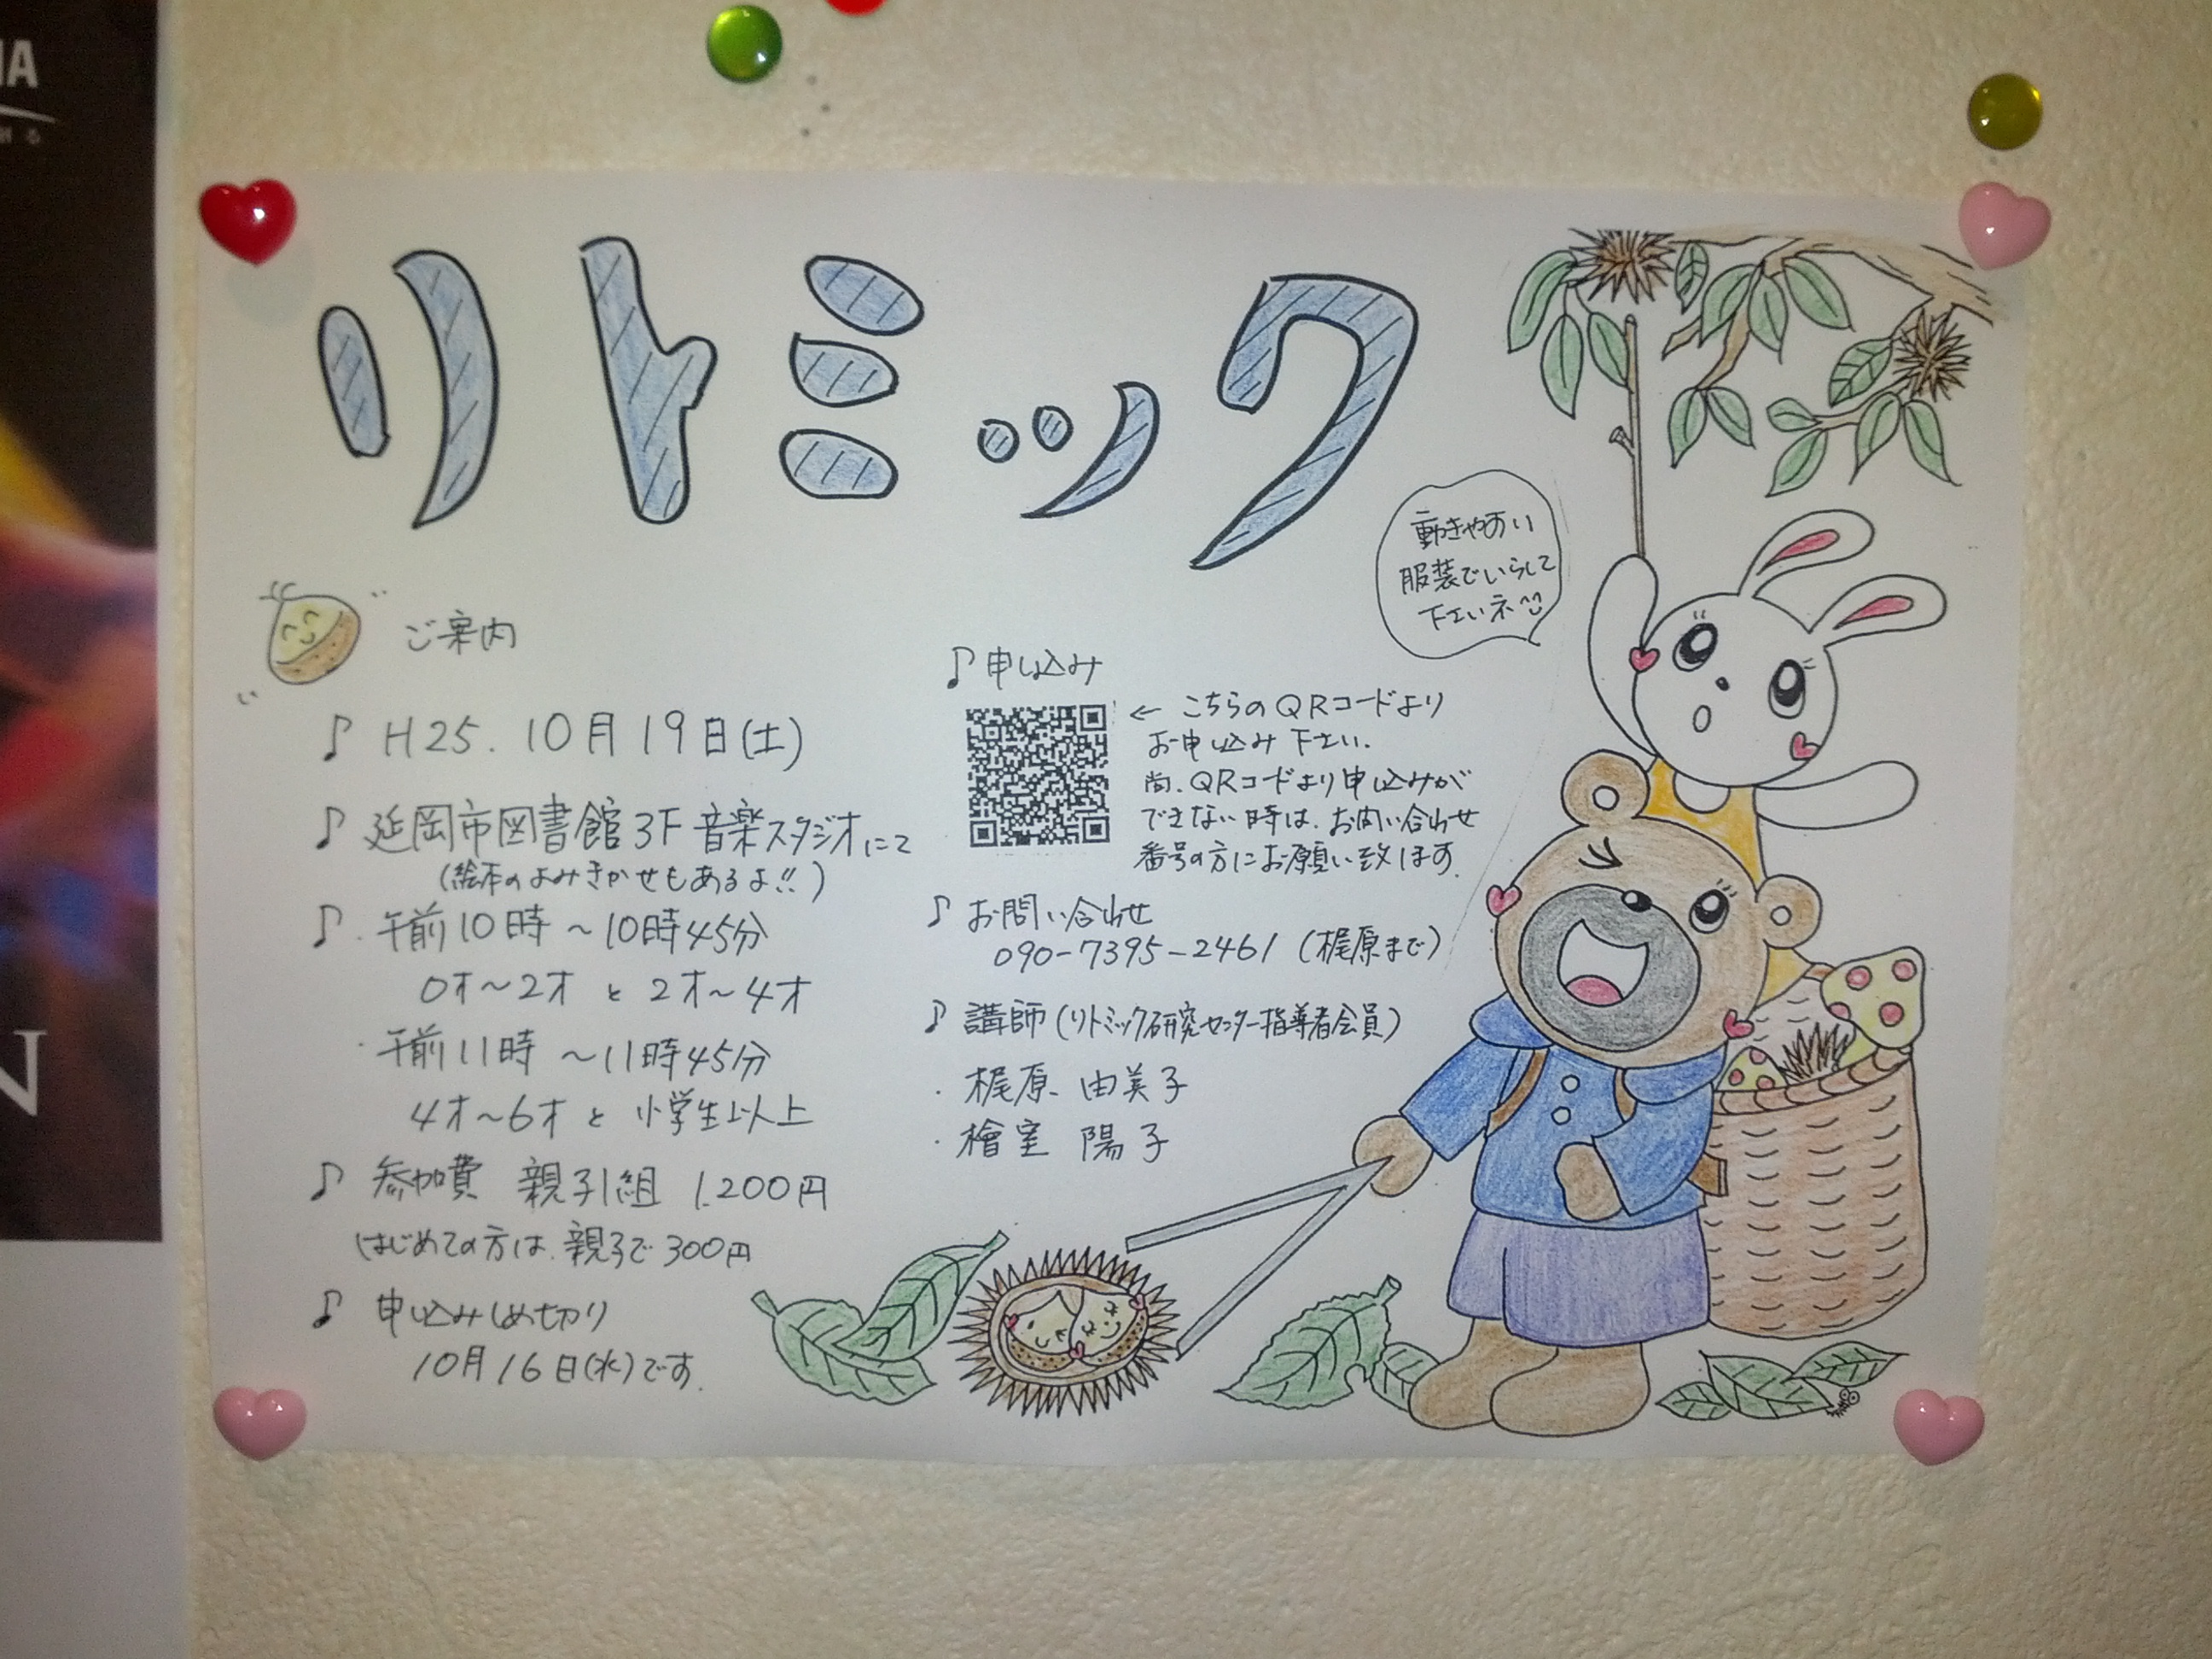 リトミック
動きやすい
服装でいらして
下さいネ
ご案内
♪ H25. 10月19日(土)
♪ 延岡市図書館3F 音楽スタジオにて
(絵本のよみきかせもあるよ!!)
♪ ・午前10時〜10時45分
0才〜2才 と 2才〜4才
・午前11時 〜11時45分
4才〜6才 と 小学生以上
♪ 参加費 親子1組 1.200円
はじめての方は、親子で300円
♪ 申し込みしめ切り
10月16日(水)です.
♪ 申し込み
← こちらのQRコードより
お申し込み下さい.
尚、QRコードより申し込みが
できない時は、お問い合わせ
番号の方にお願い致します.
♪ お問い合わせ
090-7395-2461 (梶原まで)
♪ 講師(リトミック研究センター指導者会員)
・ 梶原 由美子
・ 檜室 陽子